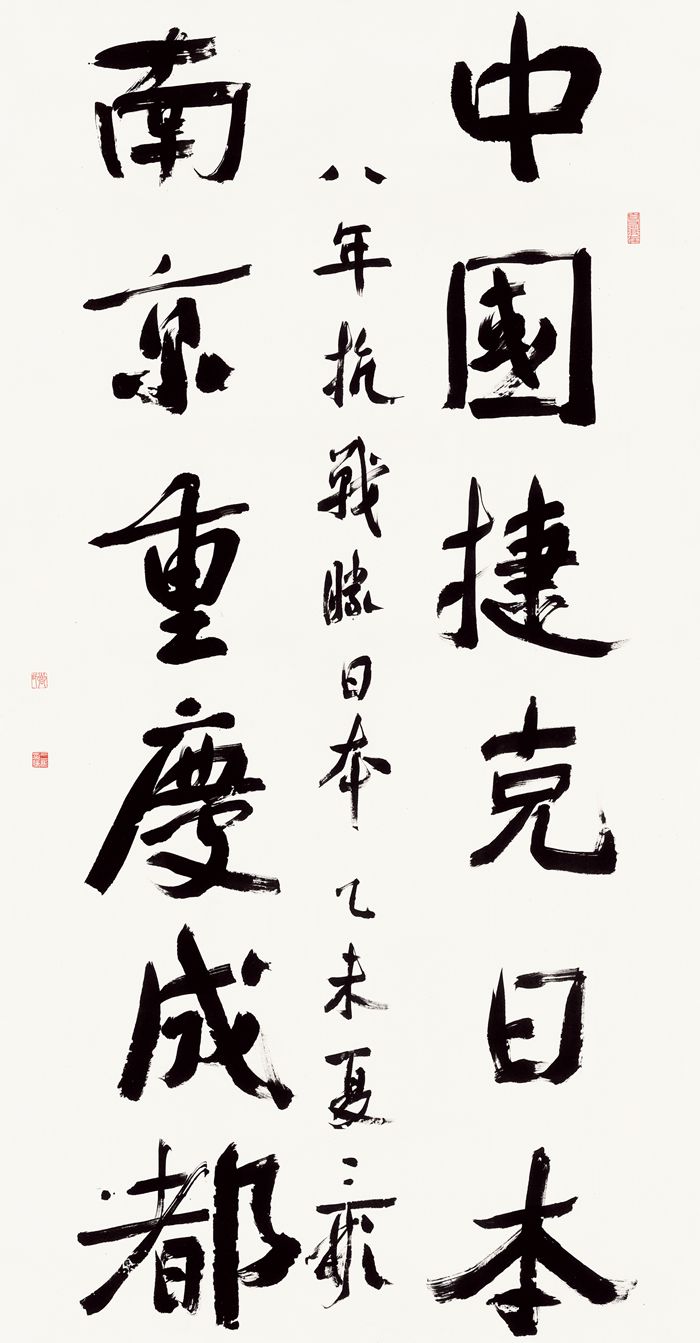 中國捷克日本
南京重慶成都
八年抗戰勝日本 乙未夏